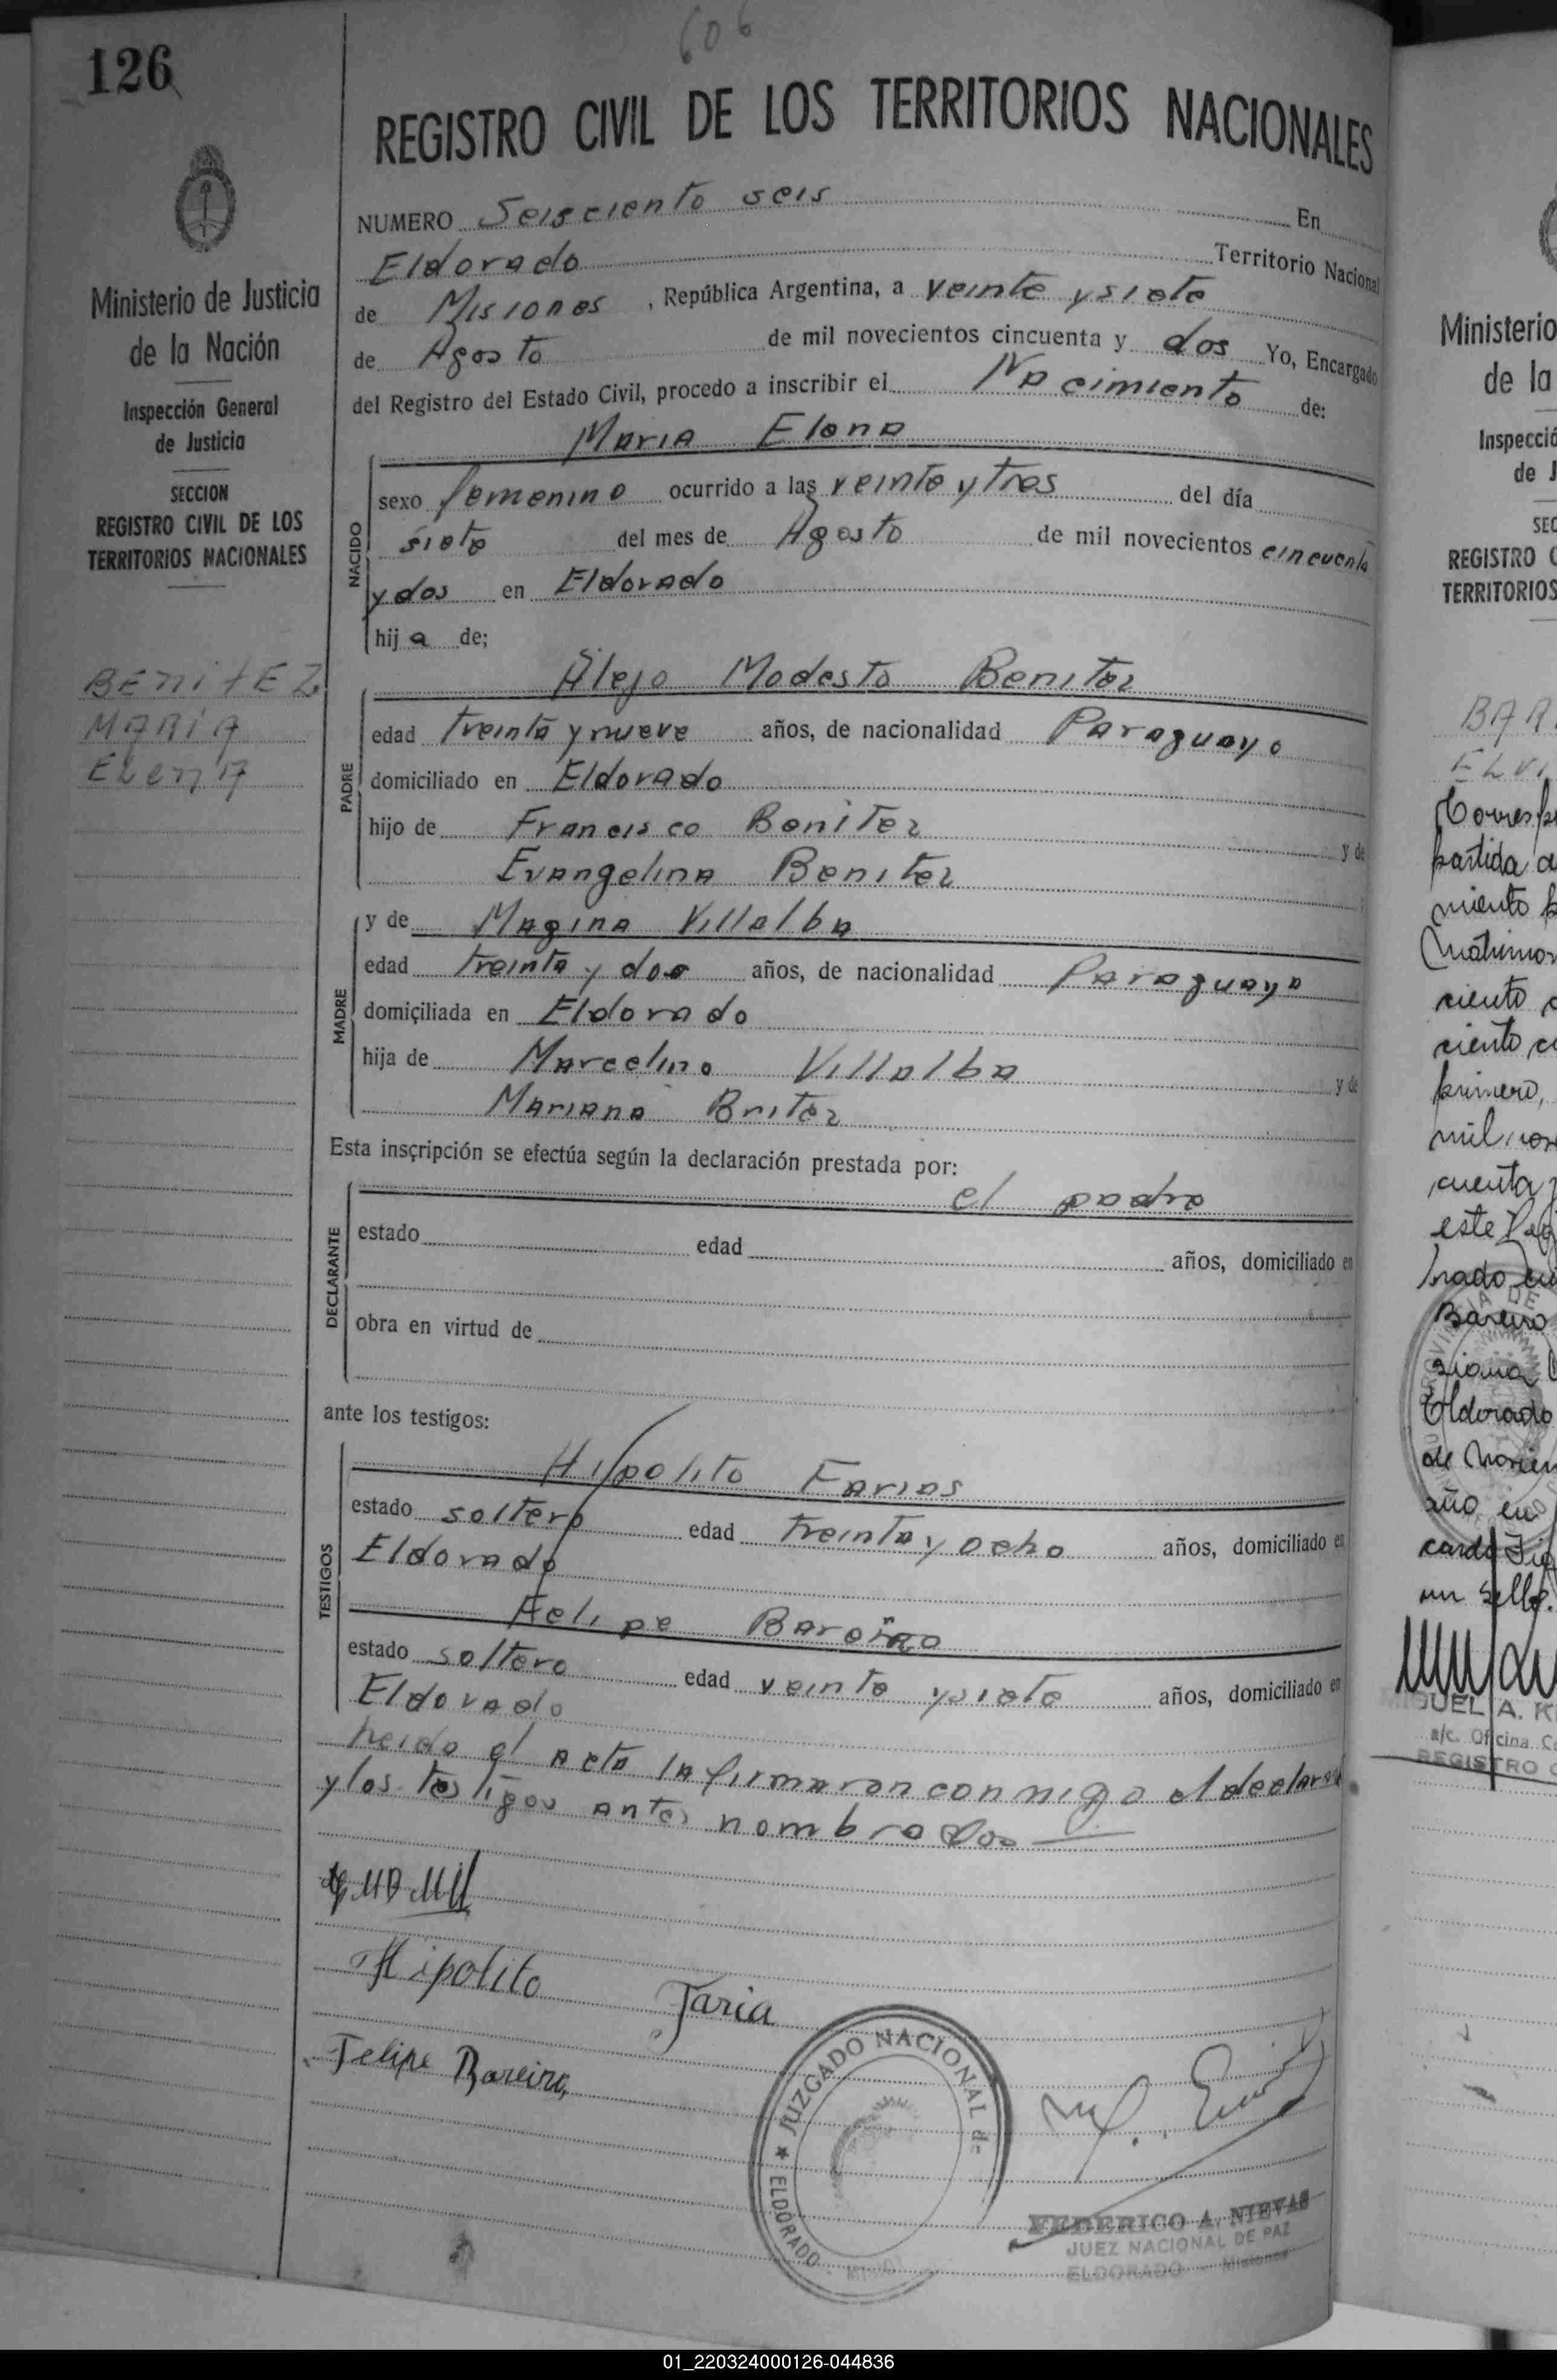 126
606
REGISTRO CIVIL DE LOS TERRITORIOS NACIONALES
Ministerio de Justicia
de la Nación
Inspección General
de Justicia
SECCION
REGISTRO CIVIL DE LOS
TERRITORIOS NACIONALES
BENITEZ
MARIA
ELENA
NUMERO Seisciento seis En
Eldorado Territorio Nacional
de Misiones, República Argentina, a veinte y siete
de Agosto de mil novecientos cincuenta y dos Yo, Encargado
del Registro del Estado Civil, procedo a inscribir el Nacimiento de:
Maria Elena
NACIDO
sexo femenino ocurrido a las veinte y tres del día
siete del mes de Agosto de mil novecientos cincuenta
y dos en Eldorado
hija de;
Alejo Modesto Benitez
PADRE
edad treinta y nueve años, de nacionalidad Paraguayo
domiciliado en Eldorado
hijo de Francisco Benitez y de
Evangelina Benitez
MADRE
y de Magina Villalba
edad treinta y dos años, de nacionalidad Paraguaya
domiciliada en Eldorado
hija de Marcelino Villalba y de
Mariana Britez
Esta inscripción se efectúa según la declaración prestada por:
el padre
DECLARANTE
estado edad años, domiciliado en
obra en virtud de
ante los testigos:
TESTIGOS
Hipolito Farias
estado soltero edad treinta y ocho años, domiciliado en
Eldorado
Felipe Bareiro
estado soltero edad veinte y siete años, domiciliado en
Eldorado
Leida el acta la firmaron conmigo el declarante
y los testigos antes nombrados
Hipolito Faria
Felipe Bareiro
JUZGADO NACIONAL de
ELDORADO
FEDERICO A. NIEVAS
JUEZ NACIONAL DE PAZ
ELDORADO - Misiones
Ministerio
de la
Inspecció
de J
SEC
REGISTRO C
TERRITORIOS
BAR
ELVI
Corresp
partida d
miento
Matrimon
ciento
ciento
primero,
mil nov
cuenta
este Reg
Bareiro
Eldorado
año en
un sello.
MIGUEL A. K
a/c. Oficina
REGISTRO
01_220324000126-044836